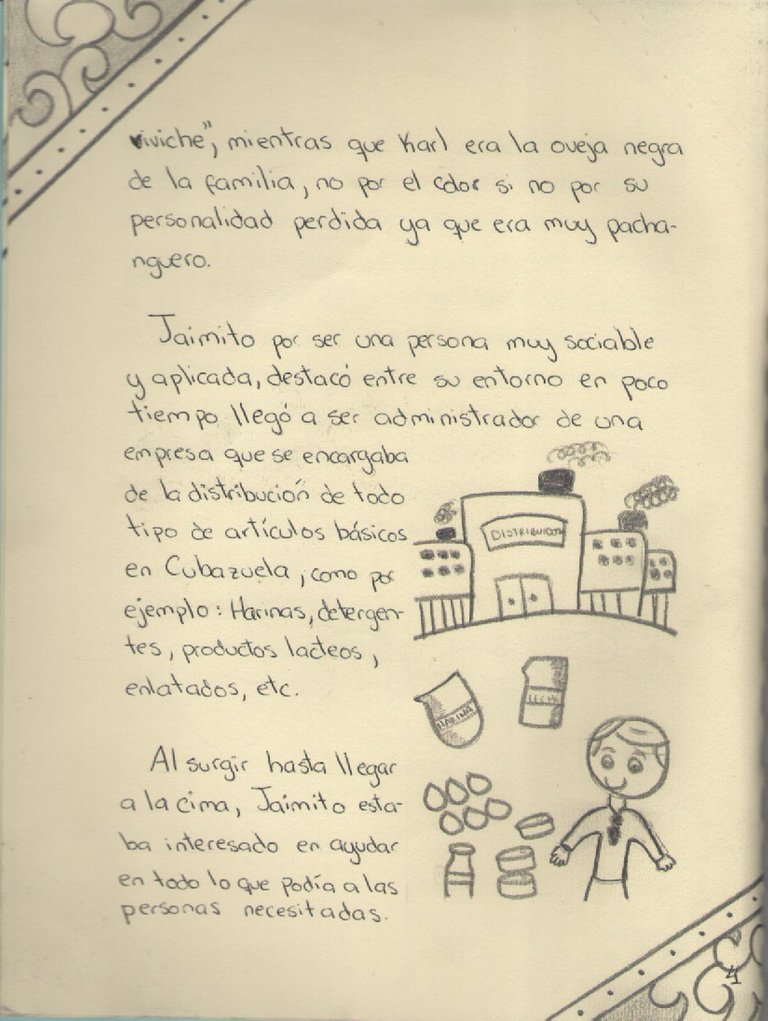 viviche", mientras que Karl era la oveja negra
de la familia, no por el color si no por su
personalidad perdida ya que era muy pacha-
nguero.
Jaimito por ser una persona muy sociable
y aplicada, destacó entre su entorno en poco
tiempo llegó a ser administrador de una
empresa que se encargaba
de la distribución de todo
tipo de artículos básicos
en Cubazuela, como por
ejemplo: Harinas, detergen-
tes, productos lacteos,
enlatados, etc.
DISTRIBUIDORA
HARINA
LECHE
Al surgir hasta llegar
a la cima, Jaimito esta-
ba interesado en ayudar
en todo lo que podía a las
personas necesitadas.
4